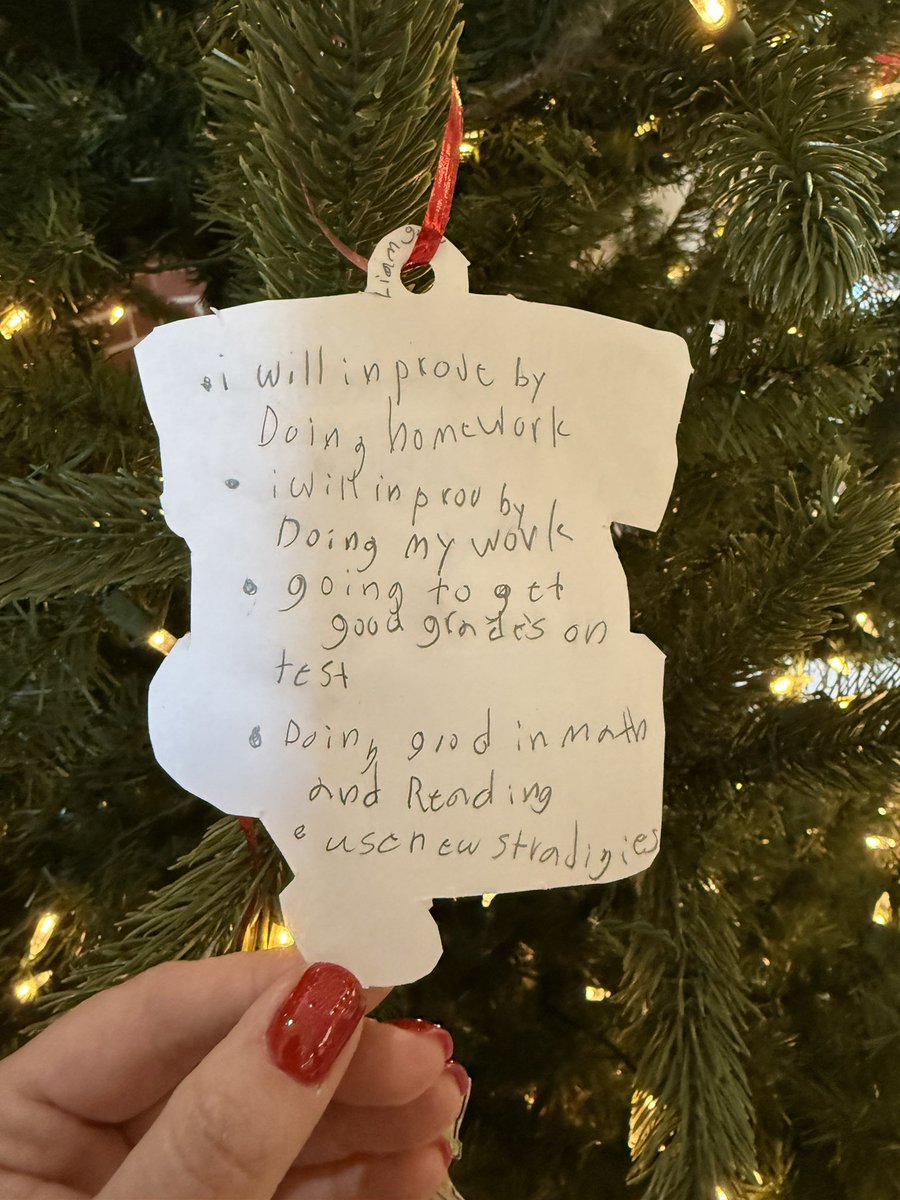 i will inprove by
Doing homework
i will in prov by
Doing my work
going to get
good grades on
test
Doing good in math
and Reading
use new stradigies